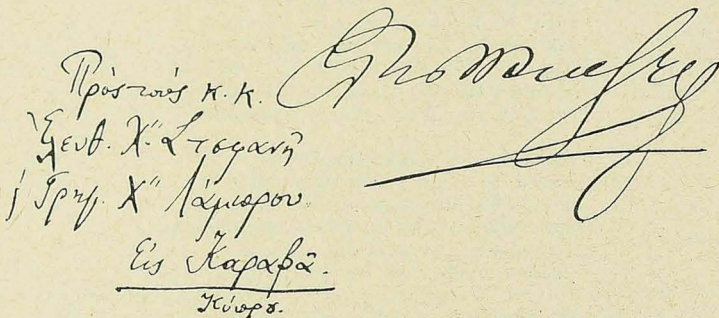 Πρὸς τοὺς κ.κ.
Ἐλευθ. Χ" Στεφανῆ
Γρηγ. Χ" Λάμπρου
Εἰς Καραβᾶ.
Κύπρο.